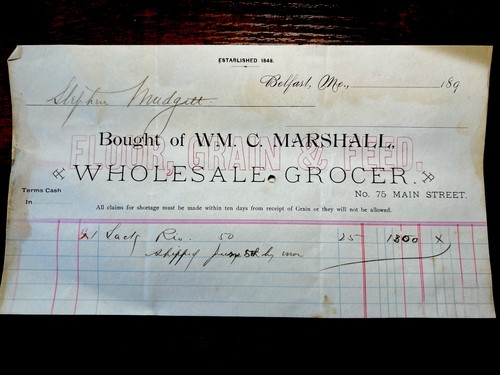 ESTABLISHED 1848.
Belfast, Me., 189
Stephen Mudgett
Bought of WM. C. MARSHALL,
FLOUR, GRAIN & FEED.
WHOLESALE GROCER.
No. 75 MAIN STREET.
Terms Cash
In
All claims for shortage must be made within ten days from receipt of Grain or they will not be allowed.
1 Sack 50 25 X
shipped June 5th by